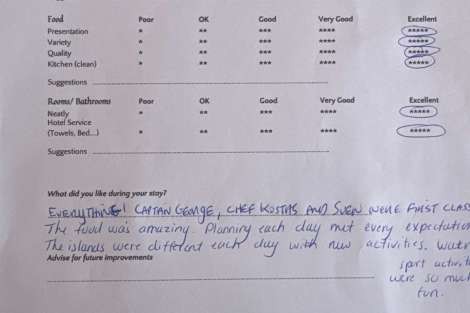 Food Poor OK Good Very Good Excellent
Presentation * ** *** **** *****
Variety * ** *** **** *****
Quality * ** *** **** *****
Kitchen (clean) * ** *** **** *****
Suggestions
Rooms/ Bathrooms Poor OK Good Very Good Excellent
Neatly * ** *** **** *****
Hotel Service
(Towels, Bed...) * ** *** **** *****
Suggestions
What did you like during your stay?
EVERYTHING! CAPTAIN GEORGE, CHEF KOSTAS AND SVEN WERE FIRST CLASS
The food was amazing. Planning each day met every expectation
The islands were different each day with new activities. Water
Advise for future improvements
sport activit
were so much
fun.